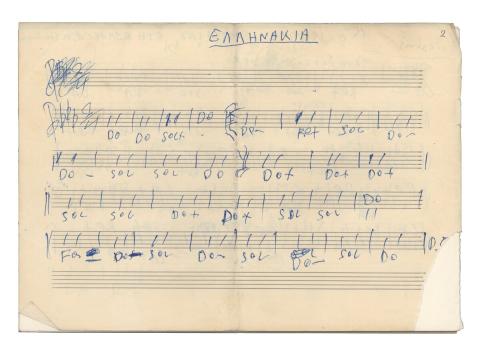 ΕΛΛΗΝΑΚΙΑ 2
Do Do SOL+ Do Do- Fa+ SOL Do-
Do- SOL SOL Do Do+ Do+ Do+
SOL SOL Do+ Do+ SOL SOL Do
Fa Do+ SOL Do- SOL Do- SOL Do D.C